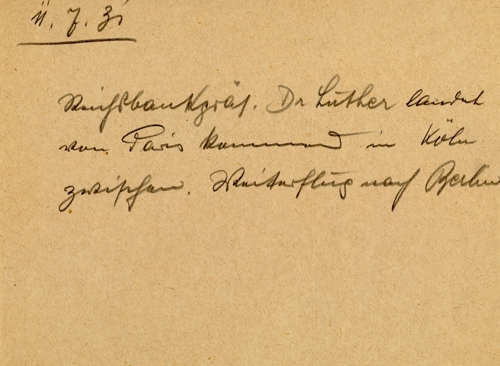 11. 7. 31
Reichsbankpräs. Dr Luther landet
von Paris kommend in Köln
zwischen. Weiterflug nach Berlin